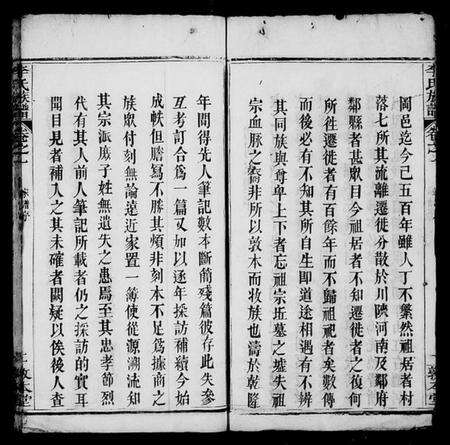 岡邑迄今已五百年雖人丁不繁然祖居者村
落七所其流離遷徙分散於川陝河南及鄰府
鄰縣者甚眾目今祖居者不知遷徙者之復何
所往遷徙者有百餘年而不歸祖視者矣數傳
而後必有不知其所自生即道途相遇有不辨
其同族與尊卑上下者忘祖宗坵墓之墟失祖
宗血脉之裔非所以敦本而收族也濤於乾隆
年間得先人筆記數本斷簡殘篇彼存此失參
互考訂合為一篇又如以逐年採訪補續今始
成帙但謄寫不勝其煩非刻本不足為據商之
族眾付刻無論遠近家置一簿使從源溯流知
其宗派庶子姓無遺失之患焉至其忠孝節烈
代有其人前人筆記所載者仍之採訪的實耳
聞目見者補入之其未確者闕疑以俟後人查
李氏族譜 卷之
敦本堂